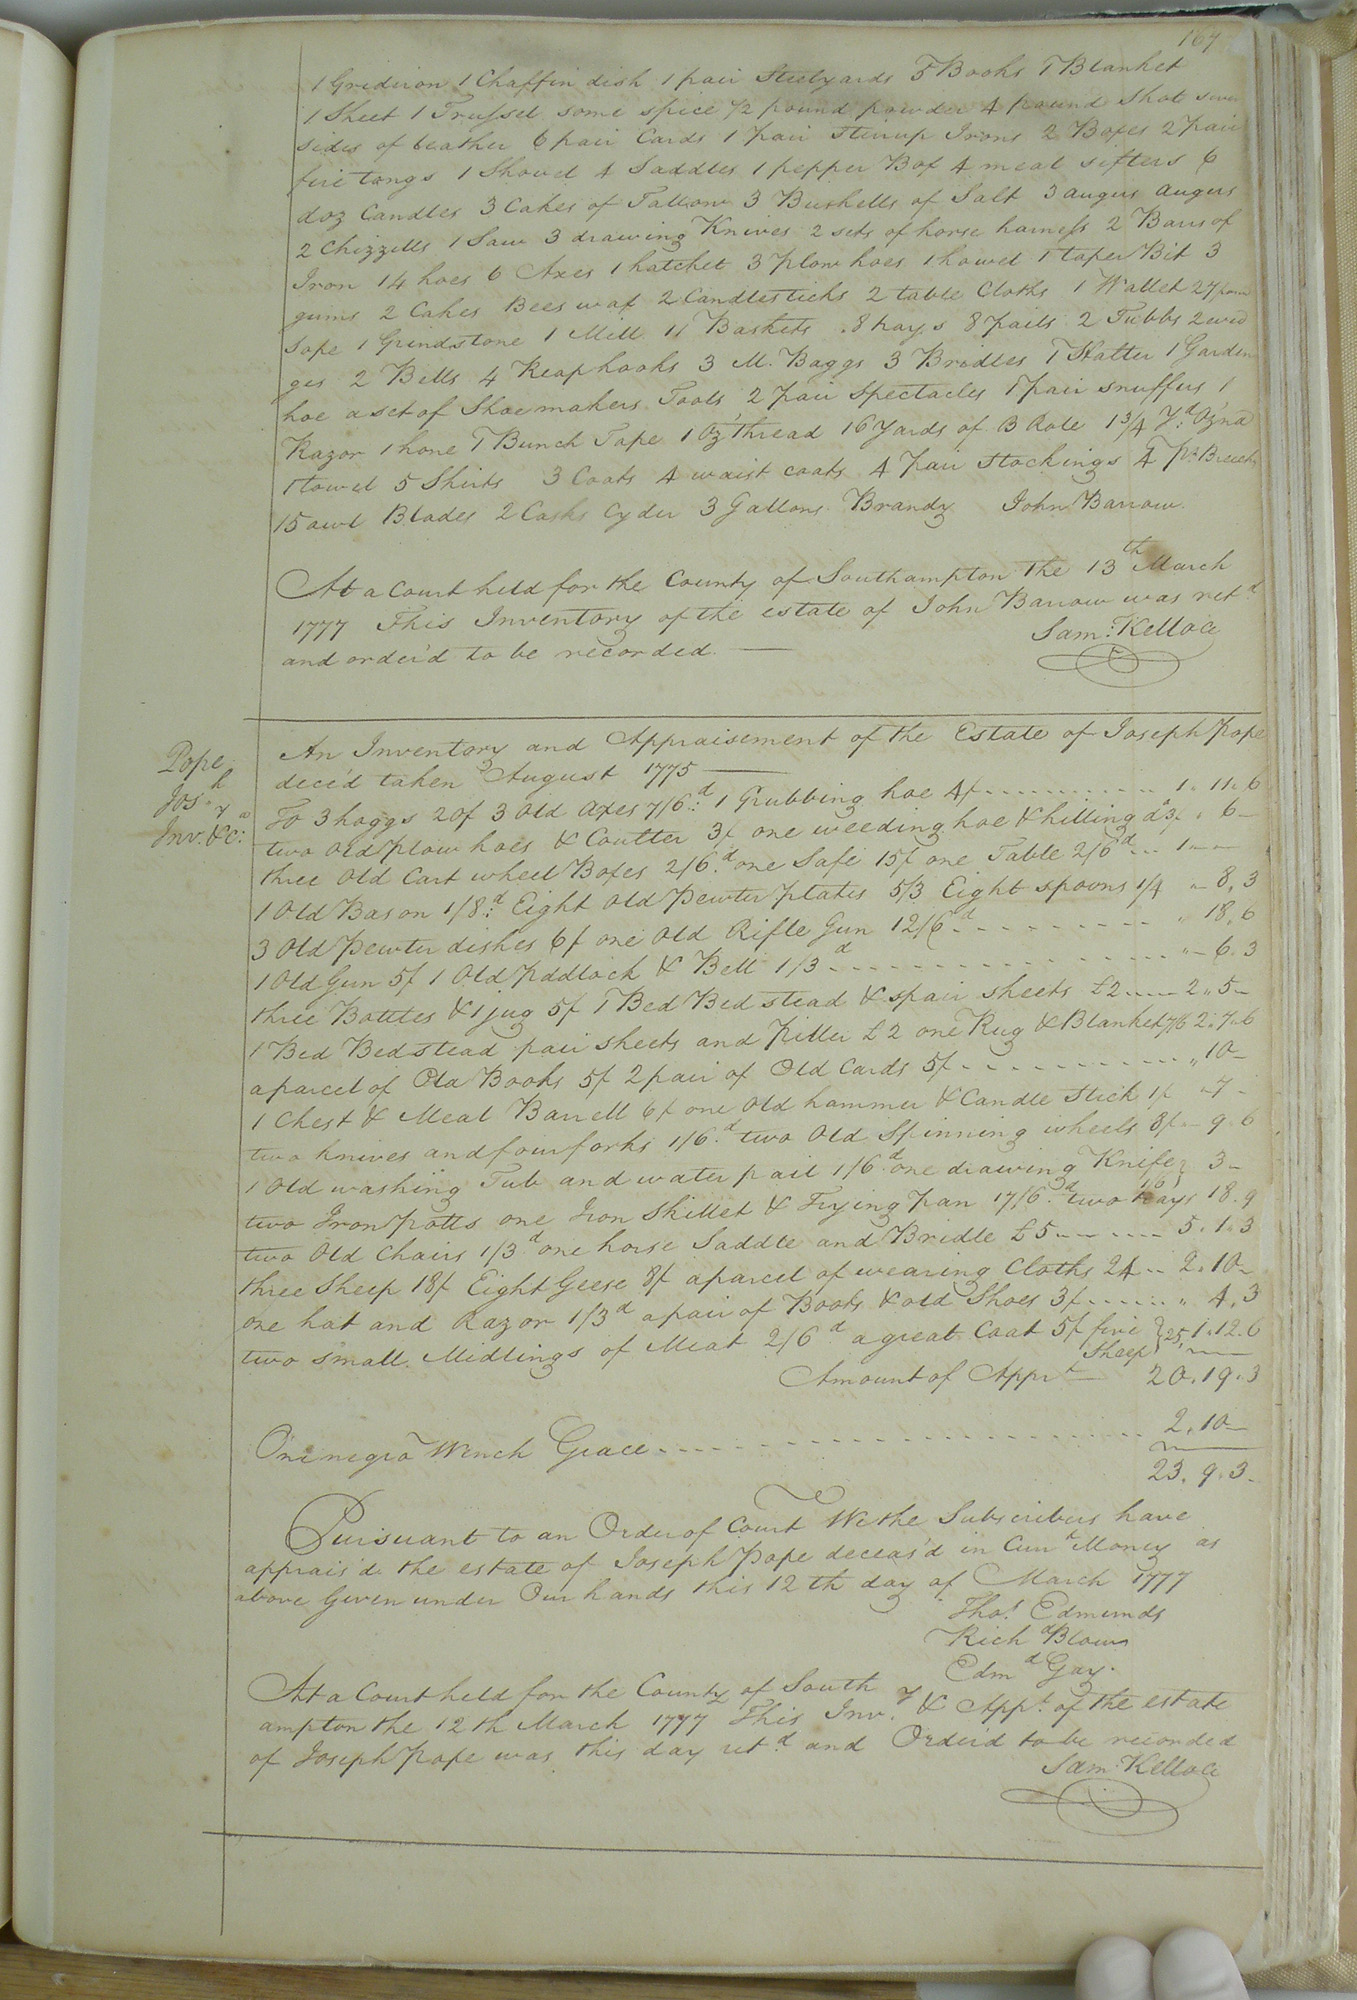 167
1 Gridiron 1 Chaffin dish 1 pair Steelyards 5 Books 1 Blanket
1 Sheet 1 Trussel some spice 1/2 pound powder 4 pound Shot
sides of leather 6 pair Cards 1 pair Stirrup Irons 2 Boxes 2 pair
fire tongs 1 Shovel 4 Saddles 1 pepper Box 4 meal sifters 6
doz Candles 3 Cakes of Tallow 3 Bushells of Salt 3 augus augurs
2 Chizzells 1 Saw 3 drawing Knives 2 sets of horse harness 2 Bars of
Iron 14 hoes 6 Axes 1 hatchet 3 plow hoes 1 howel 1 taper Bit 3
gums 2 Cakes Bees wax 2 Candlesticks 2 table Cloths 1 Wallet 27
Sope 1 Grindstone 1 Mill 11 Baskets 8 trays 8 pails 2 Tubbs 2 wed
ges 2 Bells 4 Reaphooks 3 M. Baggs 3 Bridles 1 Halter 1 Garden
hoe a set of Shoemakers Tools 2 pair Spectacles 1 pair snuffers 1
Razor 1 hone 1 Bunch Tape 1 Oz thread 16 yards of B Role 1 3/4 Yd Ozna
1 towel 5 Shirts 3 Coats 4 waist coats 4 pair Stockings 4 pr Breech
15 awl Blades 2 Casks Cyder 3 Gallons Brandy John Barrow
At a Court held for the County of Southampton the 13th March
1777 This Inventory of the estate of John Barrow was retd
and order'd to be recorded. — Sam: Kelloce
Pope
Josh
Invy &ca:
An Inventory and Appraisement of the Estate of Joseph Pope
deced taken August 1775 —
To 3 hoggs 20/ 3 old axes 7/6d: 1 Grubbing hoe 4/ 1. 11. 6
two old plow hoes & Coulter 3/ one weeding hoe & hilling do 3/ " 6 —
three old Cart wheel Boxes 2/6d one Safe 15/ one Table 2/6d 1 — —
1 Old Bason 1/8d: Eight old Pewter plates 5/3 Eight spoons 1/4 " 8. 3
3 Old pewter dishes 6/ one old Rifle Gun 12/6d " 18. 6
1 Old Gun 5/ 1 Old Pddlock & Bell 1/3d " 6. 3
three Bottles & 1 jug 5/ 1 Bed Bedstead & spair sheets £2 2.. 5 —
1 Bed Bedstead pair sheets and Piller £2 one Rug & Blanket 7/6 2. 7. 6
a parcel of Old Books 5/ 2 pair of Old Cards 5/ " 10 —
1 Chest & Meal Barrell 6/ one old hammer & Candle Stick 1/ " 7 —
two knives and four forks 1/6d two Old Spinning wheels 8/ — 9. 6
1 Old washing Tub and water pail 1/6d one drawing Knife 1/6 } 3 —
two Iron potts one Iron Skillet & Frying pan 17/6d two trays 18. 9
two old Chairs 1/3d one horse Saddle and Bridle £5 5. 1. 3
three Sheep 18/ Eight Geese 8/ a parcel of wearing Cloths 24 2. 10 —
one hat and Razor 1/3d a pair of Boots & old Shoes 3/ " 4. 3
two small Midlings of Meat 2/6d a great Coat 5/ five Sheep } 25/ 1. 12. 6
Amount of Apprt — 20. 19. 3
One negro Wench Grace 2. 10 —
23. 9. 3 —
Pursuant to an Order of Court We the Subscribers have
apprais'd the estate of Joseph Pope deceas'd in Currt Money as
above Given under Our hands this 12th day of March 1777
Thos Edmunds
Richd Blow
Edmd Gay.
At a Court held for the County of South
ampton the 12th March 1777 This Invy & Appt. of the estate
of Joseph Pope was this day retd and Order'd to be recorded
Sam: Kelloce